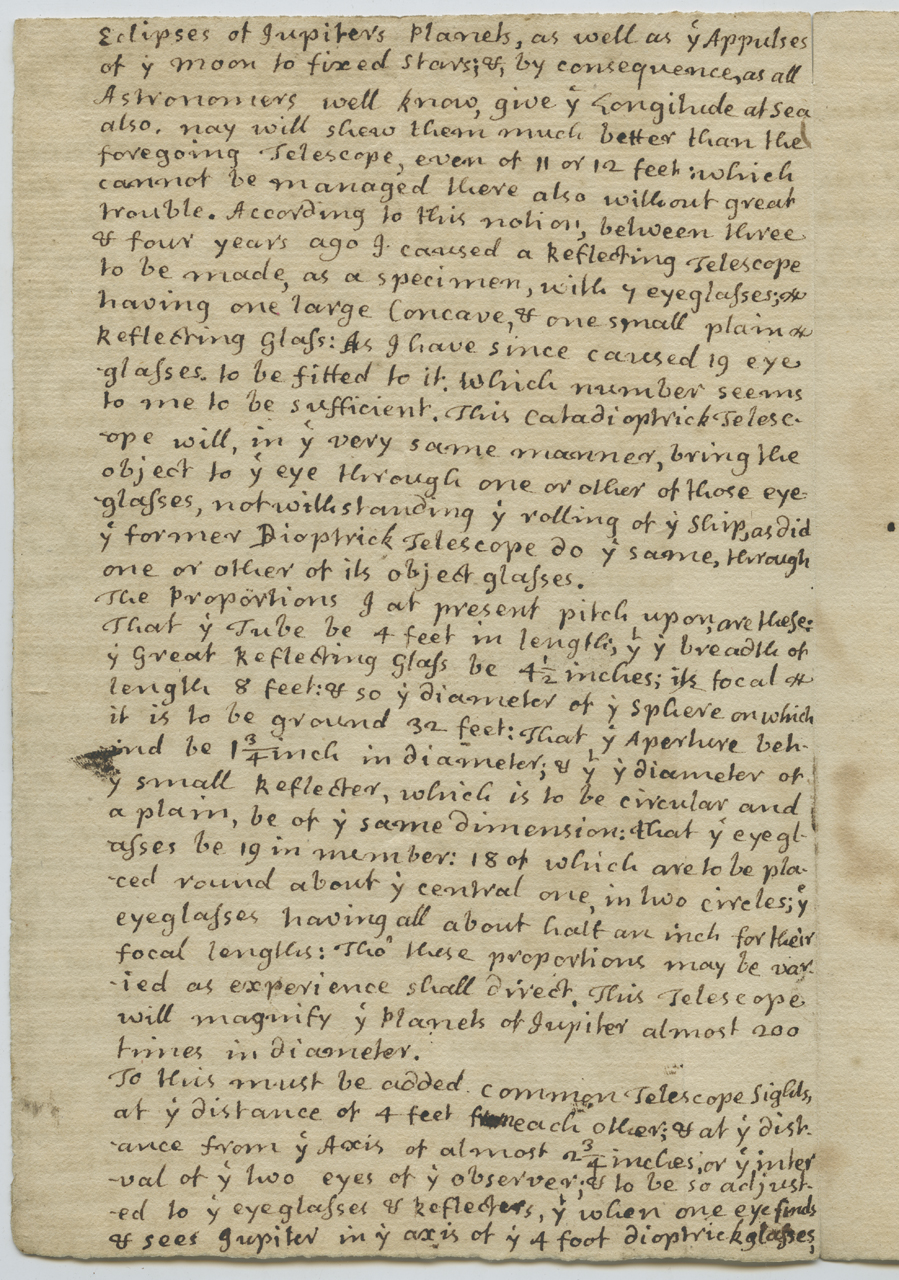 Eclipses of Jupiters Planets, as well as ẙ Appulses
of ẙ moon to fixed Stars; &, by consequence, as all
Astronomers well know, give ẙ Longitude at Sea
also. nay will shew them much better than the
foregoing Telescope, even of 11 or 12 feet: which
cannot be managed there also without great
trouble. According to this notion, between three
& four years ago I caused a Reflecting Telescope
to be made, as a specimen, with 7 eyeglasses; &
having one large Concave, & one small plain
Reflecting Glass: As I have since caused 19 eye
-glasses. to be fitted to it. Which number seems
to me to be sufficient. This Catadioptrick Telesc-
-ope will, in ẙ very same manner, bring the
object to ẙ eye through one or other of those eye-
-glasses, notwithstanding ẙ rolling of ẙ Ship, as did
ẙ former Dioptrick Telescope do ẙ same, through
one or other of its object glasses.
The Proportions I at present pitch upon, are these:
That ẙ Tube be 4 feet in length; yᵗ ẙ breadth of
ẙ Great Reflecting Glass be 4½ inches; its focal
length 8 feet: & so ẙ diameter of ẙ Sphere on which
it is to be ground 32 feet: That ẙ Aperture beh-
-ind be 1¾ inch in diameter; & yᵗ ẙ diameter of
ẙ small Reflecter, which is to be circular and
a plain, be of ẙ same dimension: that ẙ eyegl-
-asses be 19 in number: 18 of which are to be pla-
-ced round about ẙ central one, in two circles; ẙ
eyeglasses having all about half an inch for their
focal lengths: Tho' these proportions may be var-
-ied as experience shall direct. This Telescope
will magnify ẙ Planets of Jupiter almost 200
times in diameter.
To this must be added common Telescope Sights,
at ẙ distance of 4 feet from each other; & at ẙ dist-
-ance from ẙ Axis of almost 2¾ inches, or ẙ inter
-val of ẙ two eyes of ẙ observer; & to be so adjust-
-ed to ẙ eyeglasses & Reflecters, yᵗ when one eye finds
& sees Jupiter in ẙ axis of ẙ 4 foot dioptrick glasses,